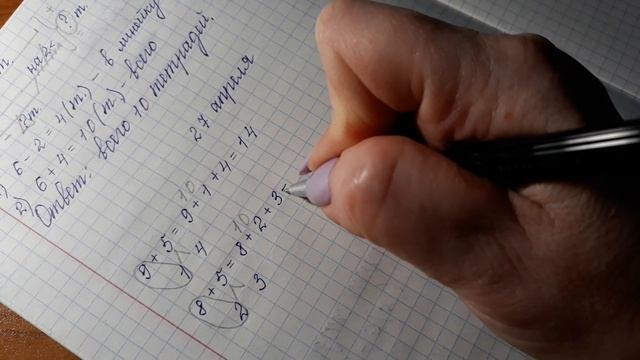 на 2 < ? т.
1) 6 - 2 = 4 (т) - в линейку
2) 6 + 4 = 10 (т) - всего
Ответ: всего 10 тетрадей.
27 апреля
10
9 + 5 = 9 + 1 + 4 = 14
1 4
10
8 + 5 = 8 + 2 + 3 =
2 3